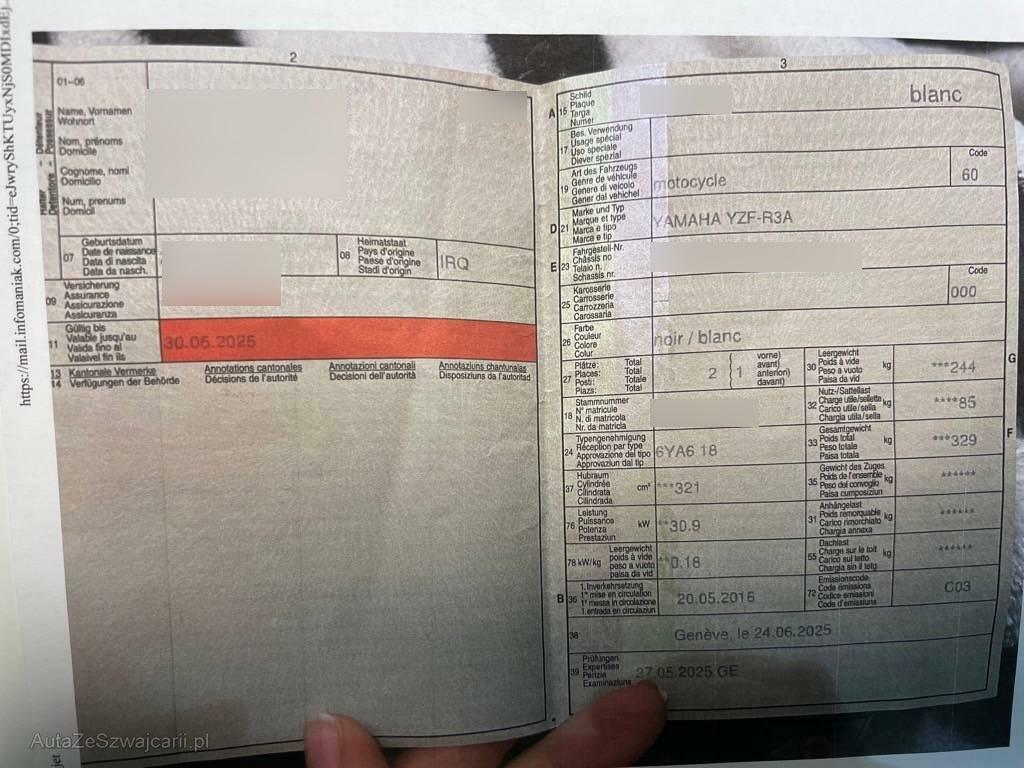 https://mail.infomaniak.com/0;tid=eJwryShKTUyxNjS0MDIxdEj-
jet
2
01-06
Halter - Détenteur
Detentore - Possessur
Name, Vornamen
Wohnort
Nom, prénoms
Domicile
Cognome, nomi
Domicilio
Num, prenums
Domicil
07
Geburtsdatum
Date de naissance
Data di nascita
Data da nasch.
08
Heimatstaat
Pays d'origine
Paese d'origine
Stadi d'origin
IRQ
09
Versicherung
Assurance
Assicurazione
Assicuranza
11
Gültig bis
Valable jusqu'au
Valida fino al
Valaivel fin ils
30.06.2025
13
14
Kantonale Vermerke
Verfügungen der Behörde
Annotations cantonales
Décisions de l'autorité
Annotazioni cantonali
Decisioni dell'autorità
Annotaziuns chantunalas
Disposiziuns da l'autoritad
3
A 15
Schild
Plaque
Targa
Numer
blanc
17
Bes. Verwendung
Usage spécial
Uso speciale
Diever spezial
19
Art des Fahrzeugs
Genre de véhicule
Genere di veicolo
Gener dal vehichel
motocycle
Code
60
D 21
Marke und Typ
Marque et type
Marca e tipo
Marca e tip
YAMAHA YZF-R3A
E 23
Fahrgestell-Nr.
Châssis no
Telaio n.
Schassis nr.
25
Karosserie
Carrosserie
Carrozzeria
Carossaria
Code
000
26
Farbe
Couleur
Colore
Colur
noir / blanc
27
Plätze: Total
Places: Total
Posti: Totale
Plazs: Total
2
1
vorne)
avant)
anteriori)
davant)
30
Leergewicht
Poids à vide
Peso a vuoto
Paisa da vid
kg
***244
G
18
Stammnummer
N° matricule
N. di matricola
Nr. da matricla
32
Nutz-/Sattellast
Charge utile/sellette
Carico utile/sella
Chargia utila/sella
kg
****85
24
Typengenehmigung
Réception par type
Approvazione del tipo
Approvaziun dal tip
6YA6 18
33
Gesamtgewicht
Poids total
Peso totale
Paisa totala
kg
***329
F
37
Hubraum
Cylindrée
Cilindrata
Cilindrada
cm³
***321
35
Gewicht des Zuges
Poids de l'ensemble
Peso del convoglio
Paisa cumposiziun
kg
******
76
Leistung
Puissance
Potenza
Prestaziun
kW
**30.9
31
Anhängelast
Poids remorquable
Carico rimorchiato
Chargia annexa
kg
******
78 kW/kg
Leergewicht
poids à vide
peso a vuoto
paisa da vid
**0.18
55
Dachlast
Charge sur le toit
Carico sul tetto
Chargia sin il tetg
kg
******
B 36
1. Inverkehrsetzung
1re mise en circulation
1a messa in circolazione
1. entrada en circulaziun
20.05.2016
72
Emissionscode
Code émissions
Codice emissioni
Code d'emissiuns
C03
38
Genève, le 24.06.2025
39
Prüfungen
Expertises
Perizie
Examinaziuns
27.05.2025 GE
AutaZeSzwajcarii.pl